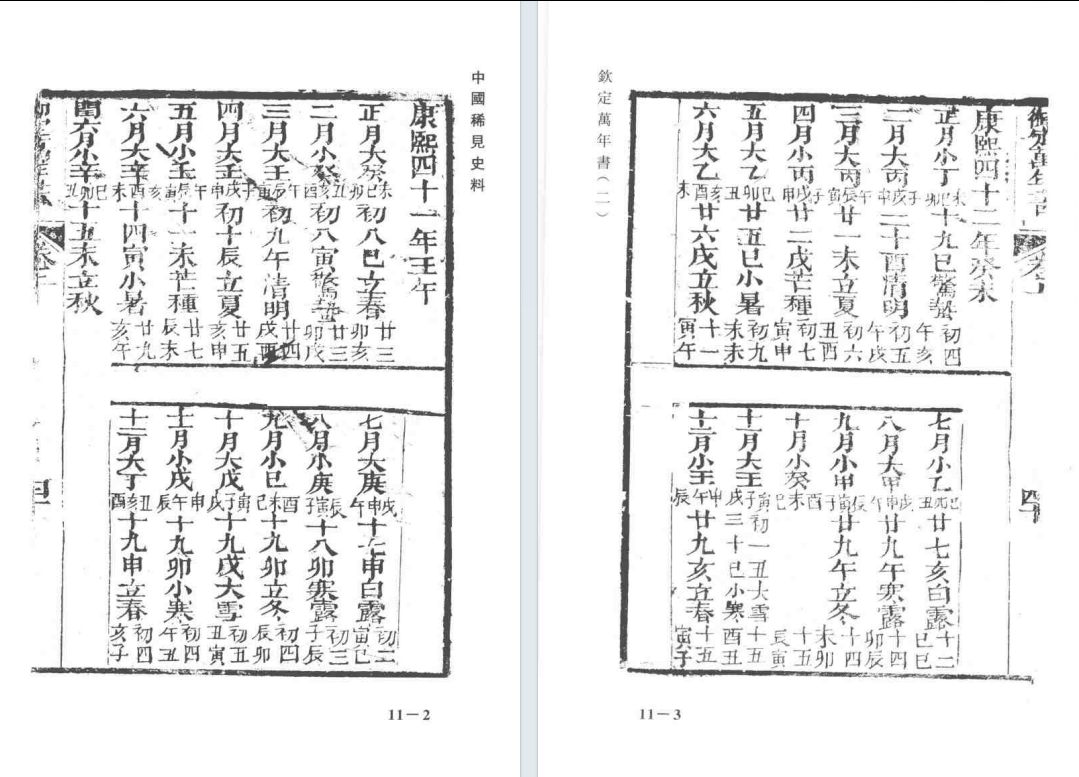 中國稀見史料
康熙四十一年壬午
正月大癸未巳卯初八巳立春廿三亥卯
二月小癸丑亥酉初八寅驚蟄廿三戌卯
三月大壬午辰寅初九午清明廿四酉戌
四月大壬子戌申初十辰立夏廿五申亥
五月小壬午寅亥十一未芒種廿七未辰
六月大辛亥酉未十四寅小暑廿九午亥
閏六月小辛巳卯丑十五未立秋
七月大庚戌申午十七申白露初二巳寅
八月小庚辰寅子十八卯寒露初三辰子
九月小己酉未巳十九卯立冬初四卯辰
十月大戊寅子戌十九戌大雪初五寅丑
十一月小戊申午辰十九卯小寒初四丑午
十二月大丁丑亥酉十九申立春初四子亥
11－2
欽定萬年書（一）
四
康熙四十二年癸未
正月小丁未巳卯十九巳驚蟄初四亥午
二月大丙子戌申二十酉清明初五戌午
三月大丙午辰寅廿一未立夏初六酉丑
四月小丙子戌申廿二戌芒種初七申寅
五月小乙巳卯丑廿五巳小暑初九未未
六月大乙亥酉未廿六戌立秋十一午寅
七月小乙巳卯丑廿七亥白露十二巳巳
八月大甲戌申午廿九午寒露十四辰卯
九月小甲辰寅子廿九午立冬十四卯未
十月小癸酉未巳十五寅辰
十一月大壬寅子戌初一丑大雪三十巳小寒十五丑酉
十二月小壬申午辰廿九亥立春十五子寅
11－3